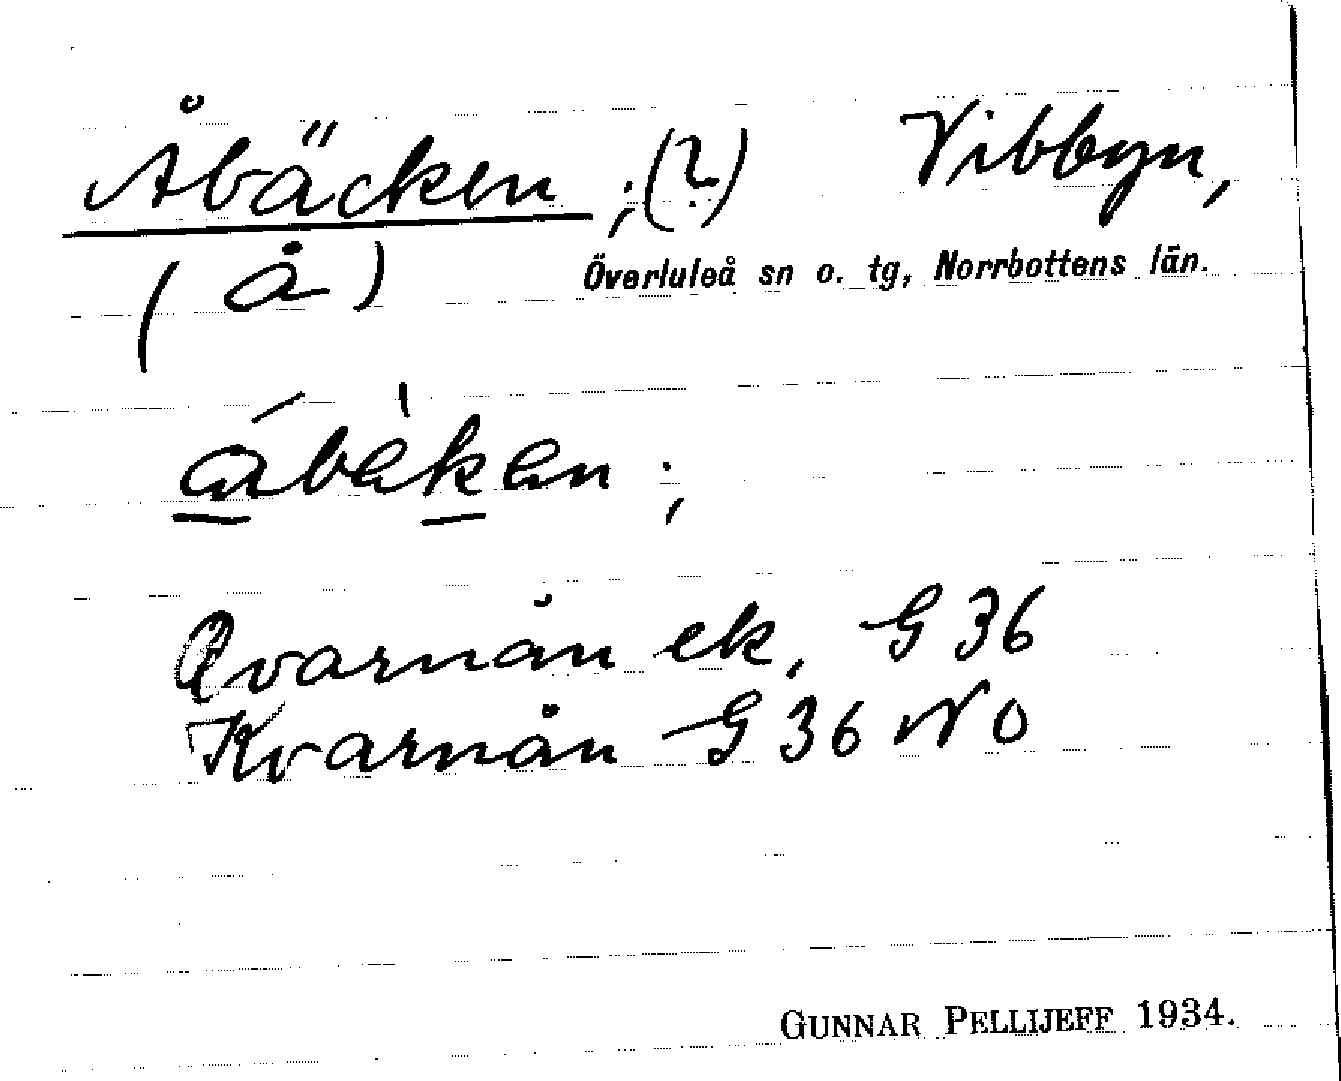 Åbäcken ;(?) Vibbyn,
(å) Överluleå sn o. tg, Norrbottens län.
ábèken ;
Qvarnån ek. G 36
Kvarnån G 36 NO
GUNNAR PELLIJEFF 1934.